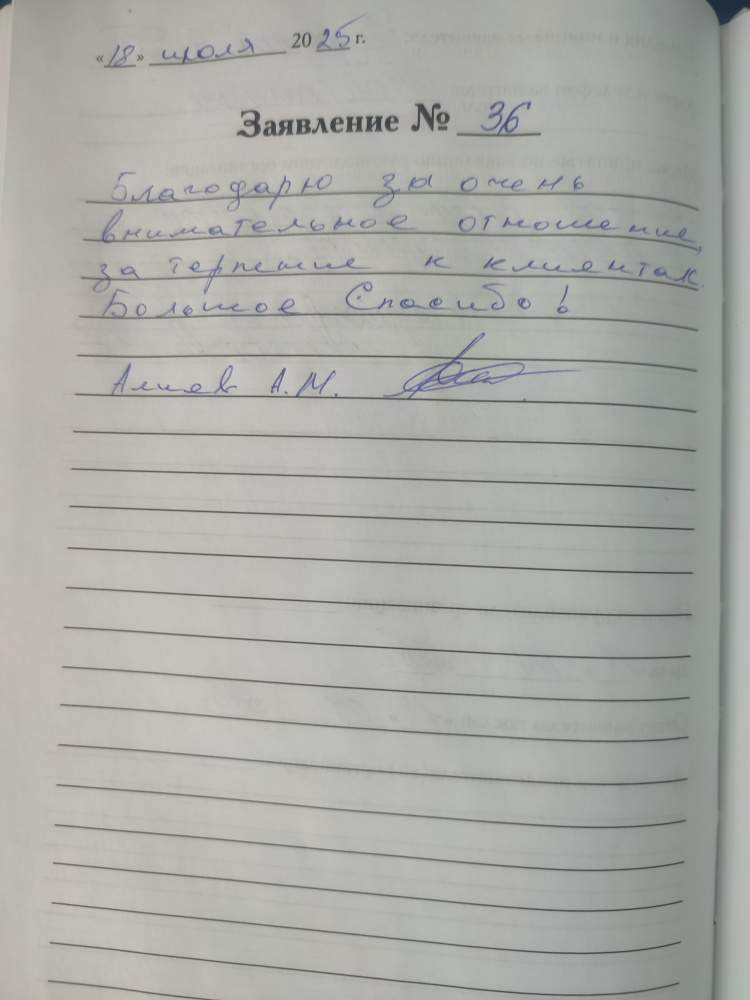 «18» июля 2025 г.
Заявление № 36
Благодарю за очень
внимательное отношение,
за терпение к клиентам.
Большое Спасибо!
Алиев А.М.